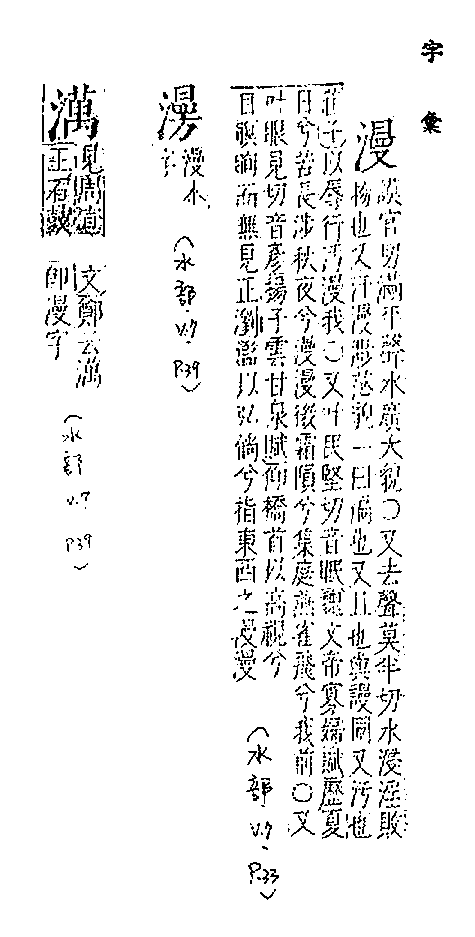 字彙
漫
謨官切滿平聲水廣大貌○又去聲莫半切水浸淫敗
物也又汗漫渺茫貌一曰徧也又且也與謾同又污也
莊子以辱行污漫我○又叶民堅切音眠魏文帝寡婦賦歷夏
日兮苦長涉秋夜兮漫漫微霜隕兮集庭燕雀飛兮我前○又
叶眼見切音彥揚子雲甘泉賦仰橋首以高視兮
目瞑眴而無見正瀏濫以弘倘兮指東西之漫漫
(水部 V.7 - P.33)
澷
漫本
字
(水部 V.7 P.39)
澫
見周道
正石鼓
文鄭云澫
即漫字
(水部 V.7 P.39)